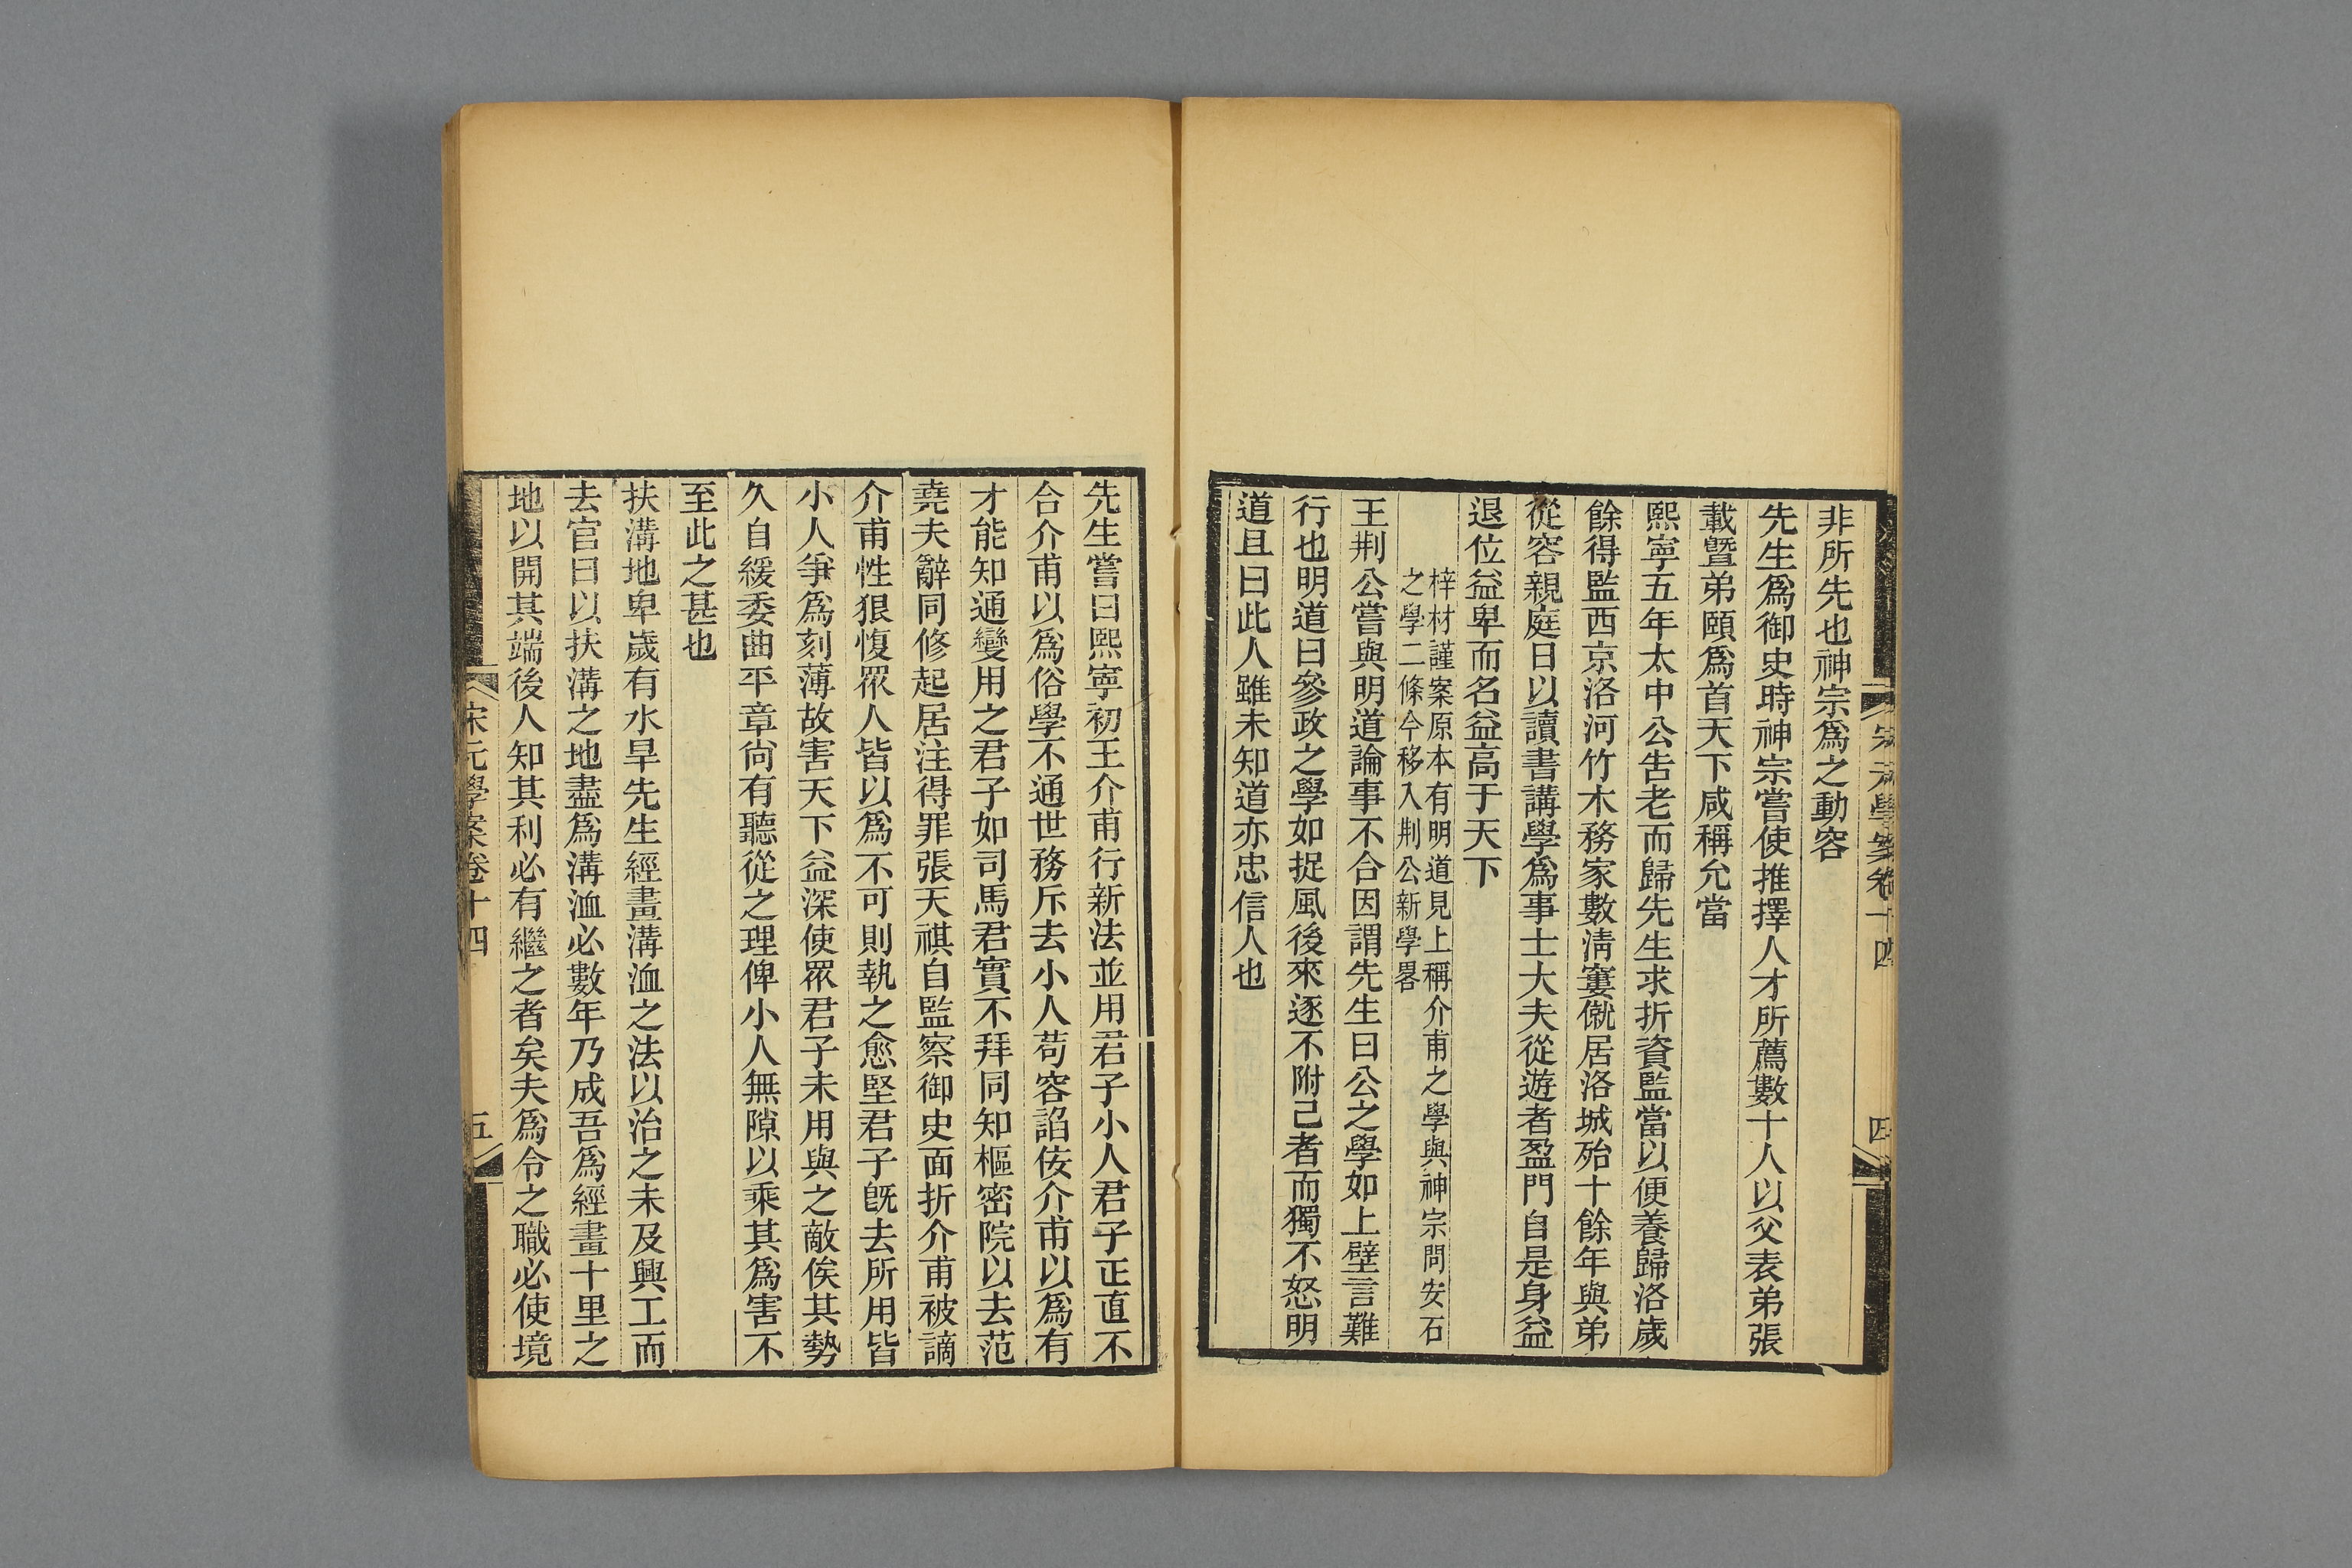 宋元學案卷十四
四
非所先也神宗爲之動容
先生爲御史時神宗嘗使推擇人才所薦數十人以父表弟張
載暨弟頤爲首天下咸稱允當
熙寧五年太中公告老而歸先生求折資監當以便養歸洛歲
餘得監西京洛河竹木務家數淸窶僦居洛城殆十餘年與弟
從容親庭日以讀書講學爲事士大夫從遊者盈門自是身益
退位益卑而名益高于天下
梓材謹案原本有明道見上稱介甫之學與神宗問安石
之學二條今移入荆公新學畧
王荆公嘗與明道論事不合因謂先生曰公之學如上壁言難
行也明道曰參政之學如捉風後來逐不附己者而獨不怒明
道且曰此人雖未知道亦忠信人也
先生嘗曰熙寧初王介甫行新法並用君子小人君子正直不
合介甫以爲俗學不通世務斥去小人苟容諂佞介甫以爲有
才能知通變用之君子如司馬君實不拜同知樞密院以去范
堯夫辭同修起居注得罪張天祺自監察御史面折介甫被謫
介甫性狠愎眾人皆以爲不可則執之愈堅君子旣去所用皆
小人爭爲刻薄故害天下益深使眾君子未用與之敵俟其勢
久自緩委曲平章尙有聽從之理俾小人無隙以乘其爲害不
至此之甚也
扶溝地卑歲有水旱先生經畫溝洫之法以治之未及興工而
去官曰以扶溝之地盡爲溝洫必數年乃成吾爲經畫十里之
地以開其端後人知其利必有繼之者矣夫爲令之職必使境
宋元學案卷十四
五